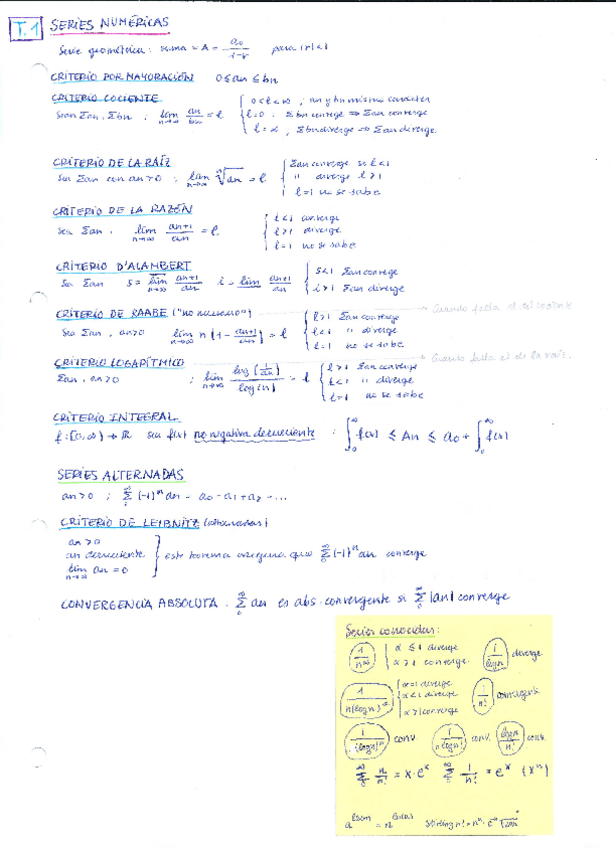 T.1 SERIES NUMÉRICAS
Serie geométrica: suma = A = a₀/(1-r) para |r|<1
CRITERIO POR MAYORACIÓN 0 ≤ an ≤ bn
CRITERIO COCIENTE
Sean Σan, Σbn ; lim n→∞ an/bn = l { 0<l<∞, an y bn mismo caracter
l=0, Σbn converge ⇒ Σan converge
l=∞, Σbn diverge ⇒ Σan diverge
CRITERIO DE LA RAÍZ
Sea Σan con an>0 ; lim n→∞ ⁿ√an = l { Σan converge si l<1
" diverge l>1
l=1 no se sabe
CRITERIO DE LA RAZÓN
Sea Σan, lim n→∞ an+1/an = l { l<1 converge
l>1 diverge
l=1 no se sabe
CRITERIO D'ALAMBERT
Sea Σan S = lim an+1/an i = lim an+1/an { S<1 Σan converge
i>1 Σan diverge
CRITERIO DE RAABE ("no numero") → Cuando falla el del cociente
Sea Σan, an>0 lim n→∞ n(1 - an+1/an) = l { l>1 Σan converge
l<1 " diverge
l=1 no se sabe
CRITERIO LOGARÍTMICO → Cuando falla el de la raíz.
Σan, an>0 ; lim n→∞ log(1/an)/log(n) = l { l>1 Σan converge
l<1 " diverge
l=1 no se sabe
CRITERIO INTEGRAL
f: [0,∞) → ℝ sea f(x) no negativa decreciente : ∫₀^∞ f(x) ≤ An ≤ a₀ + ∫₀^∞ f(x)
SERIES ALTERNADAS
an>0 ; Σ₀^∞ (-1)ⁿ an = a₀ - a₁ + a₂ - ...
CRITERIO DE LEIBNITZ (alternadas)
an>0
an decreciente } este teorema asegura que Σ₀^∞ (-1)ⁿ an converge
lim n→∞ an = 0
CONVERGENCIA ABSOLUTA. Σ₀^∞ an es abs. convergente si Σ₀^∞ |an| converge
Series conocidas:
1/n^α { α ≤ 1 diverge
α > 1 converge
1/logn diverge
1/n(logn)^α { α=1 diverge
α<1 diverge
α>1 converge
1/n! convergente
1/(logn)ⁿ conv. conv. logn/n! conv.
Σ₀^∞ n/n! = x·eˣ Σ₀^∞ 1/n! = eˣ (xⁿ)
Stirling n! = nⁿ·e⁻ⁿ √2πn